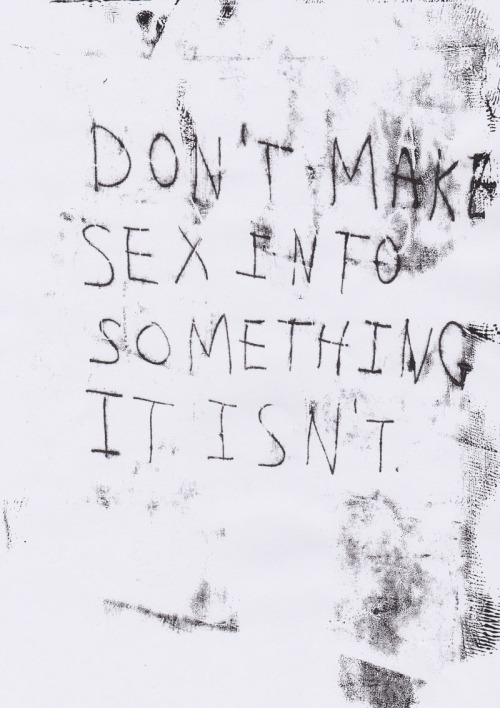 DON'T MAKE
SEX INTO
SOMETHING
IT ISN'T.